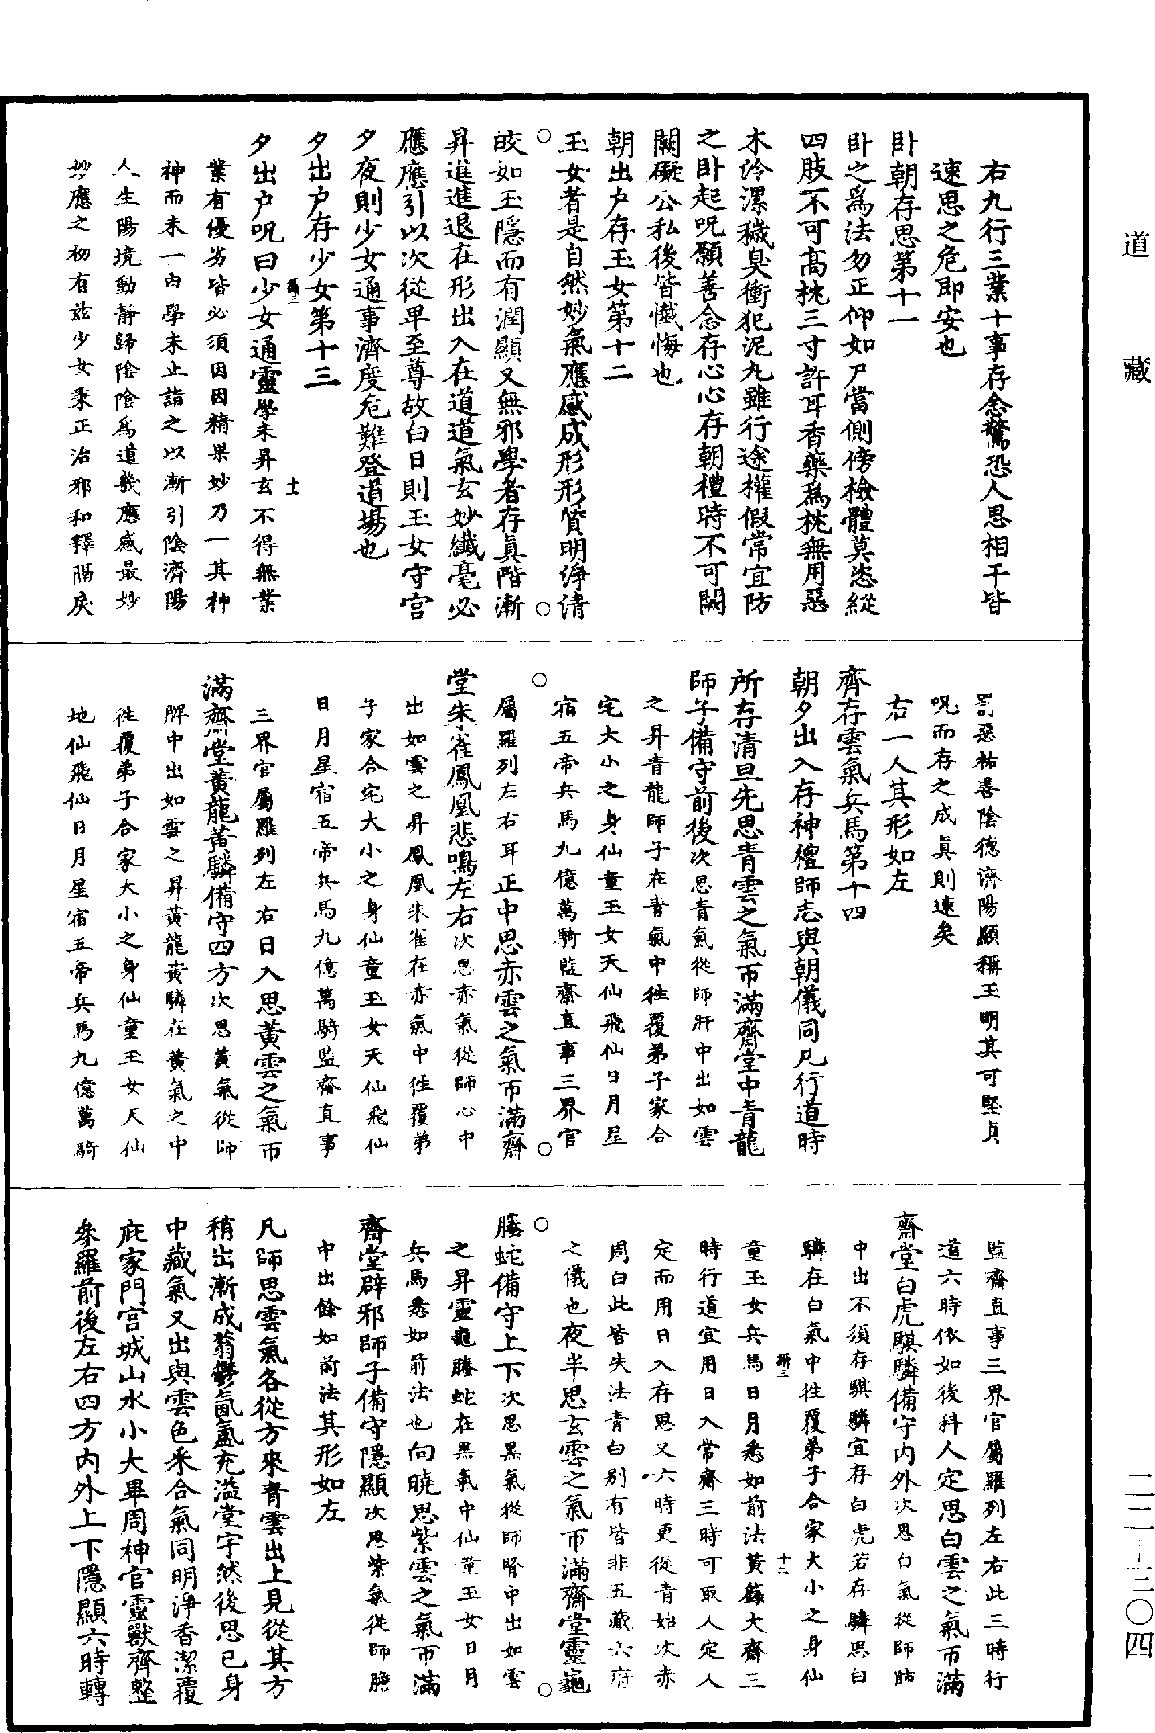 道藏
右九行三業十事存念驚恐人思相干皆
速思之危即安也
卧朝存思第十一
卧之爲法勿正仰如尸當側傍檢體莫恣縱
四肢不可高枕三寸許耳香藥爲枕無用惡
木冷漯穢臭衝犯泥丸雖行途權假常宜防
之卧起呪願善念存心心存朝禮時不可闕
闕礙公私後皆懺悔也
朝出户存玉女第十二
玉女者是自然妙氣應感成形形質明淨清
皎如玉隱而有潤顯又無邪學者存真階漸
昇進進退在形出入在道道氣玄妙纖毫必
應應引以次從卑至尊故白日則玉女守宫
夕夜則少女通事濟度危難登道場也
夕出户存少女第十三
夕出户呪曰少女通靈學未昇玄不得無業
業有優劣皆必須因因精果妙乃一其神
神而未一內學未止詣之以漸引陰濟陽
人生陽境動靜歸陰陰爲道幾應感最妙
妙應之初有兹少女秉正治邪和釋陽戾
罰惡祐善陰德濟陽顯稱玉明其可堅貞
呪而存之成真則速矣
右一人其形如左
齊存雲氣兵馬第十四
朝夕出入存神禮師志與朝儀同凡行道時
所存清旦先思青雲之氣帀滿齋堂中青龍
師子備守前後次思青氣從師肝中出如雲
之昇青龍師子在青氣中往覆弟子家合
宅大小之身仙童玉女天仙飛仙日月星
宿五帝兵馬九億萬騎監齋直事三界官
屬羅列左右耳正中思赤雲之氣帀滿齋
堂朱雀鳳凰悲鳴左右次思赤氣從師心中
出如雲之昇鳳凰朱雀在赤氣中往覆弟
子家合宅大小之身仙童玉女天仙飛仙
日月星宿五帝兵馬九億萬騎監齋直事
三界官屬羅列左右日入思黃雲之氣帀
滿齋堂黃龍黃驎備守四方次思黃氣從師
脾中出如雲之昇黃龍黃驎在黃氣之中
往覆弟子合家大小之身仙童玉女天仙
地仙飛仙日月星宿五帝兵馬九億萬騎
監齋直事三界官屬羅列左右此三時行
道六時依如後科人定思白雲之氣帀滿
齋堂白虎騏驎備守內外次思白氣從師肺
中出不須存騏驎宜存白虎若存驎思白
驎在白氣中往覆弟子合家大小之身仙
童玉女兵馬日月悉如前法黃籙大齋三
時行道宜用日入常齋三時可取人定人
定而用日入存思又六時更從青始次赤
周白此皆失法青白别有皆非五藏六府
之儀也夜半思玄雲之氣帀滿齋堂靈龜
螣蛇備守上下次思黑氣從師腎中出如雲
之昇靈龜螣蛇在黑氣中仙童玉女日月
兵馬悉如前法也向曉思紫雲之氣帀滿
齋堂辟邪師子備守隱顯次思紫氣從師膽
中出餘如前法其形如左
凡師思雲氣各從方來青雲出上見從其方
稍出漸成蓊鬱氤氳充溢堂宇然後思己身
中藏氣又出與雲色釆合氣同明淨香潔覆
庇家門宫城山水小大畢周神官靈獸齊整
叅羅前後左右四方內外上下隱顯六時轉
二二—三〇四